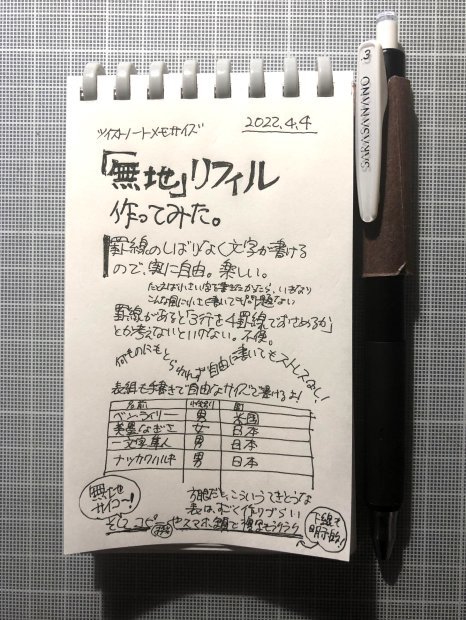 ツイストノートメモサイズ
2022.4.4
「無地」リフィル
作ってみた。
罫線のしばりなく文字が書ける
ので、実に自由。楽しい。
たとえば小さい字を書きたかったら、いきなり
こんな風に小さく書いても問題ない
罫線があると「3行を4罫線でおさめるか」
とか考えないといけない。不便。
何ものにもとらわれず自由に書いてもストレスなし!
表組も手書きで自由なサイズで書けるよ!
名前 性別 国
男 米国
女 日本
一文字隼人 男 日本
ナッカワハルキ 男 日本
無地サイコー!
方眼だと、こういうてきとうな
表は、すごく作りづらい
そしてコピー やスマホ
下線で明示的!
SARASA NANO
.3